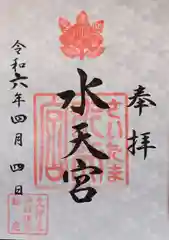 奉拝
さいたま
水天宮
令和六年四月四日